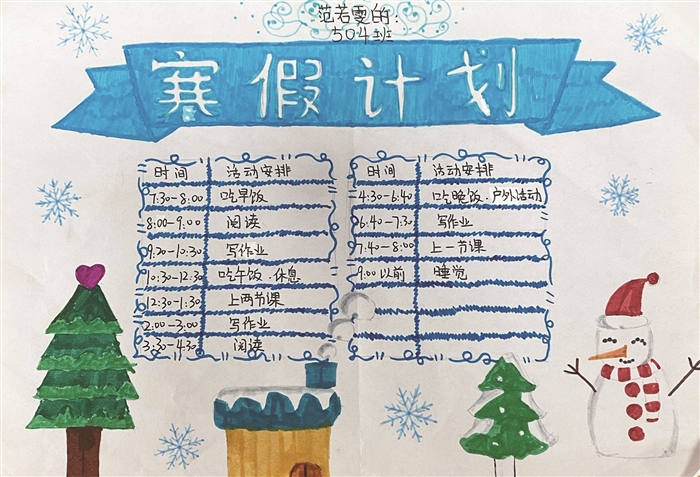 范若雯的:
504班
寒假计划
时间 活动安排
7:30-8:00 吃早饭
8:00-9:00 阅读
9:20-10:30 写作业
10:30-12:30 吃午饭.休息
12:30-1:30 上两节课
2:00-3:00 写作业
3:30-4:30 阅读
时间 活动安排
4:30-6:40 吃晚饭.户外活动
6:40-7:30 写作业
7:40-8:00 上一节课
9:00以前 睡觉